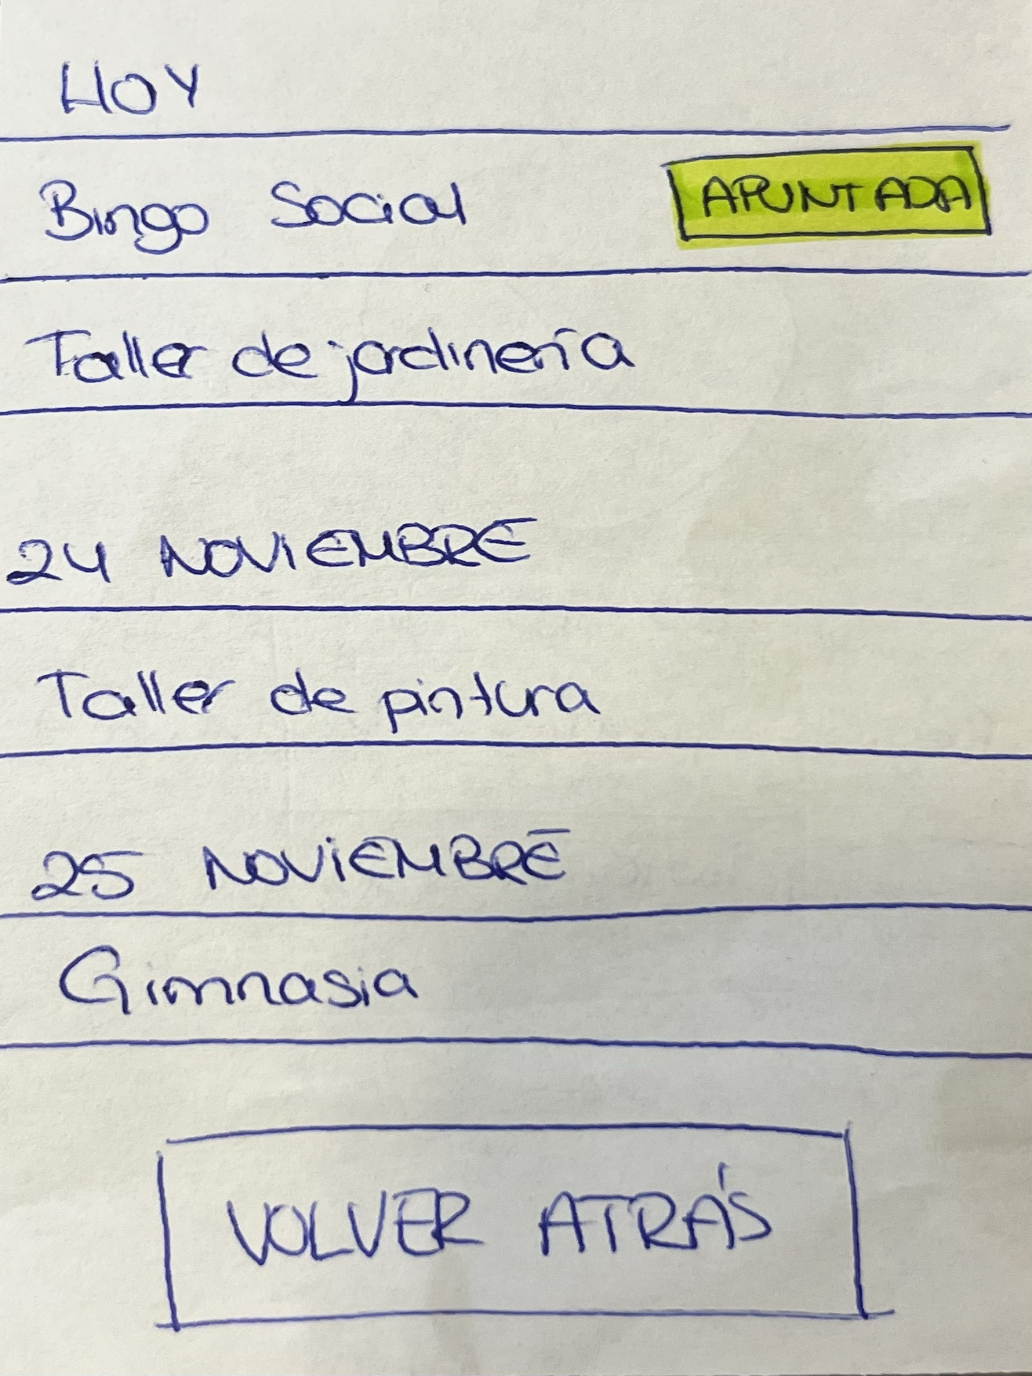 HOY
Bingo Social APUNTADA
Taller de jardinería
24 NOVIEMBRE
Taller de pintura
25 NOVIEMBRE
Gimnasia
VOLVER ATRÁS